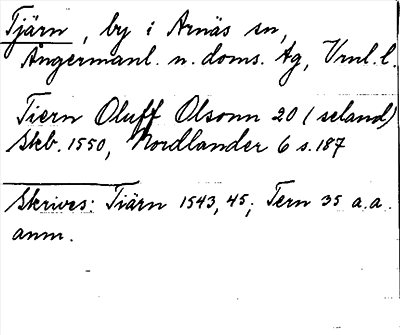 Tjärn, by i Arnäs sn,
Ångermanl. n. doms. tg, Vrnl. l.
Tiern Oluff Olsonn 20 (seland)
Skb. 1550, Nordlander 6 s. 187
Skrives: Tiärn 1543, 45; Tern 35 a.a.
anm.